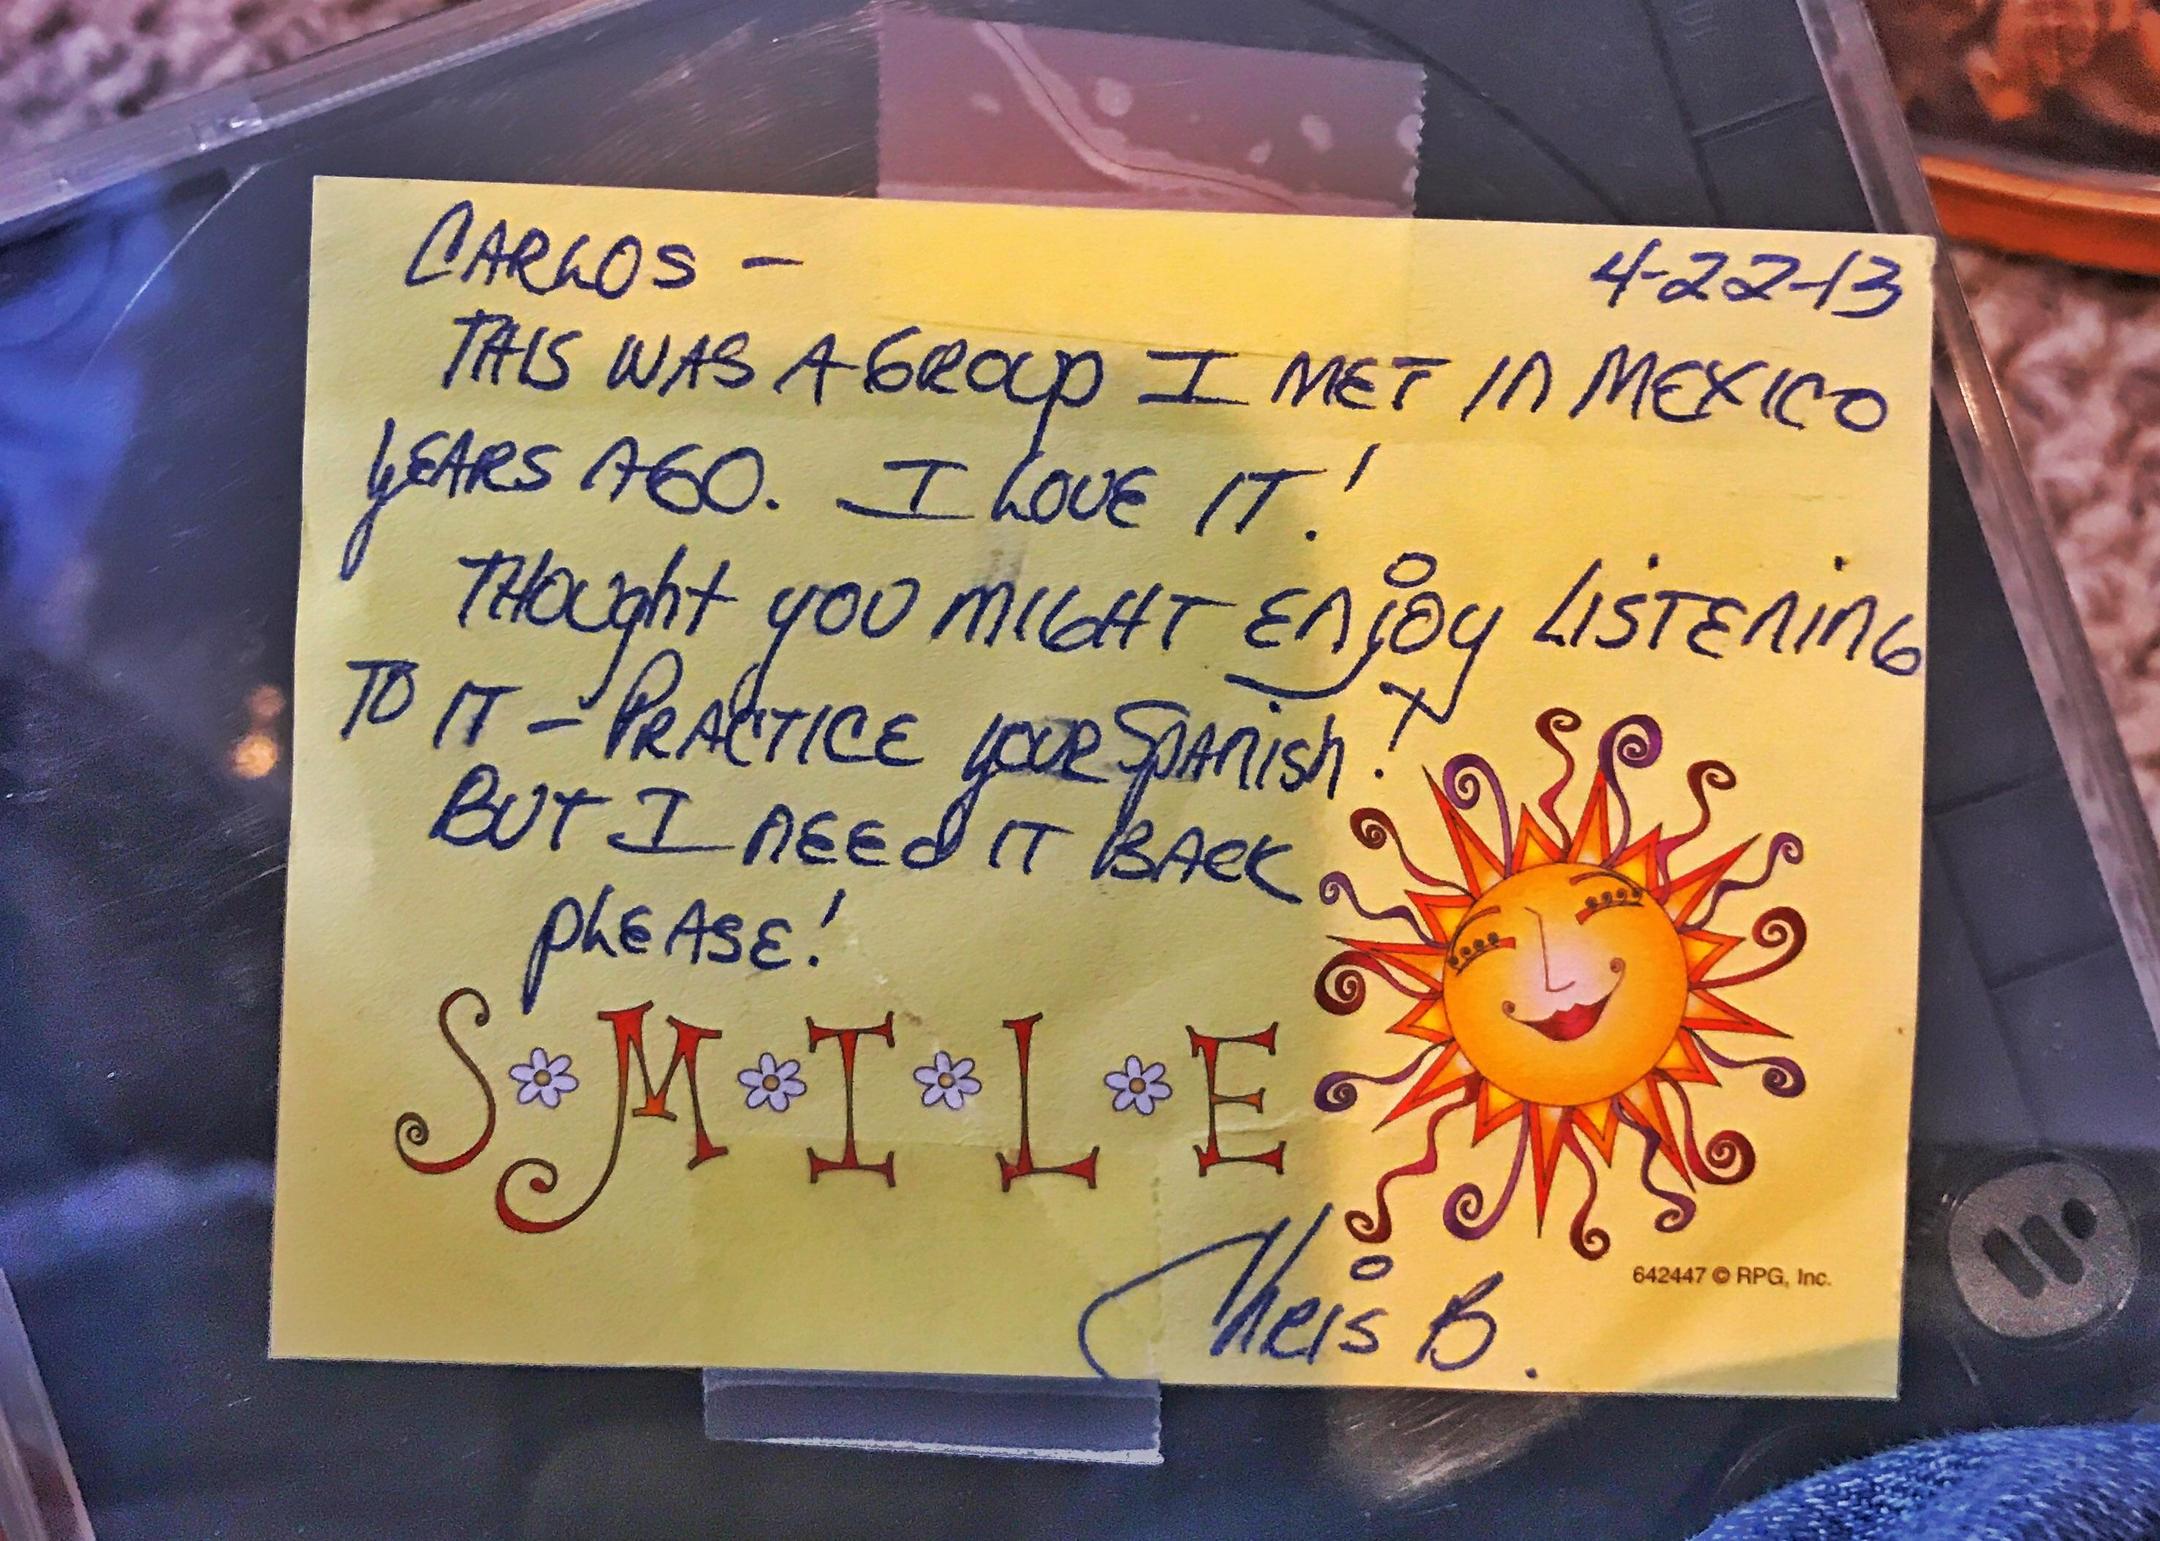 CARLOS – 4-22-13
THIS WAS A GROUP I MET IN MEXICO
YEARS AGO. I LOVE IT!
THOught YOU MIGHT ENjOY LISTENING
TO IT – PRACTICE YOUR SPANish!
BUT I NEEd IT BACK
PLEASE!
S M I L E
Chris B.
642447 © RPG, Inc.